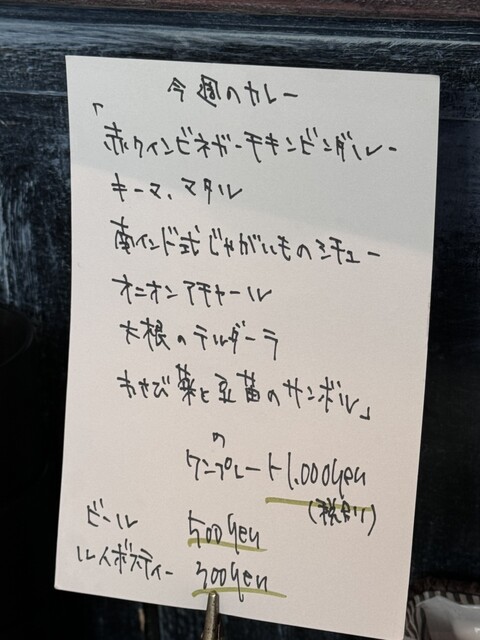 今週のカレー
「赤ワインビネガーチキンビンダルー
キーマ、マタル
南インド式じゃがいものシチュー
オニオンアチャール
大根のテルダーラ
わさび菜と豆苗のサンボル」
の
ワンプレート1.000yen
(税込)
ビール 500yen
ルイボスティー 300yen